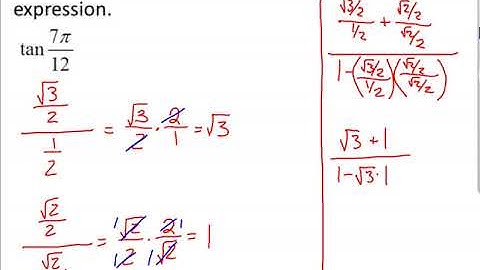 expression.
tan 7π/12
(√3/2)/(1/2) = √3/2 · 2/1 = √3
(√2/2)/(√2 = 1√2/12 · 21/1√2 = 1
((√3/2)/(1/2) + (√2/2)/(√2/2))/(1-((√3/2)/(1/2))((√2/2)/(√2/2)))
(√3 + 1)/(1-√3·1)